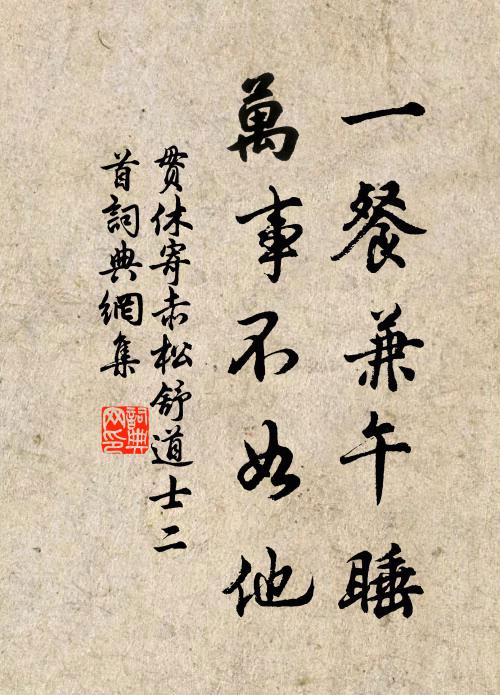 一餐兼午睡
萬事不如他
貫休寄赤松舒道士二
首詞典網集
詞典网印